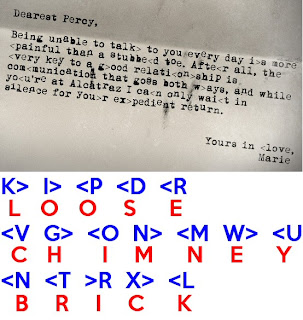 Dearest Percy,
Being unable to talk> to you every day i>s more
<painful than a stubbe<d toe. Afte<r all, the
<very key to a g>ood relati<on>ship is
com<munication that goes both w>ays, and while
yo<u're at Alcatraz I ca<n only wai<t in
silence for you>r ex>pedient return.
Yours in <love,
Marie
K> I> <P <D <R
L O O S E
<V G> <O N> <M W> <U
C H I M N E Y
<N <T >R X> <L
B R I C K